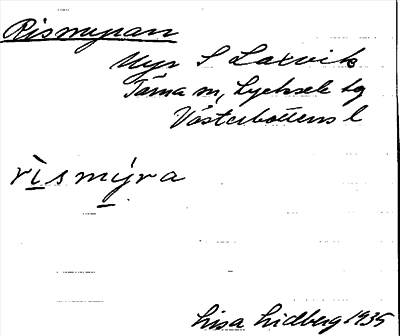 Rismyran
Myr S Laxvik
Tärna sn, Lycksele lg
Västerbottens l
rìsmýra
Lisa Lidberg 1935